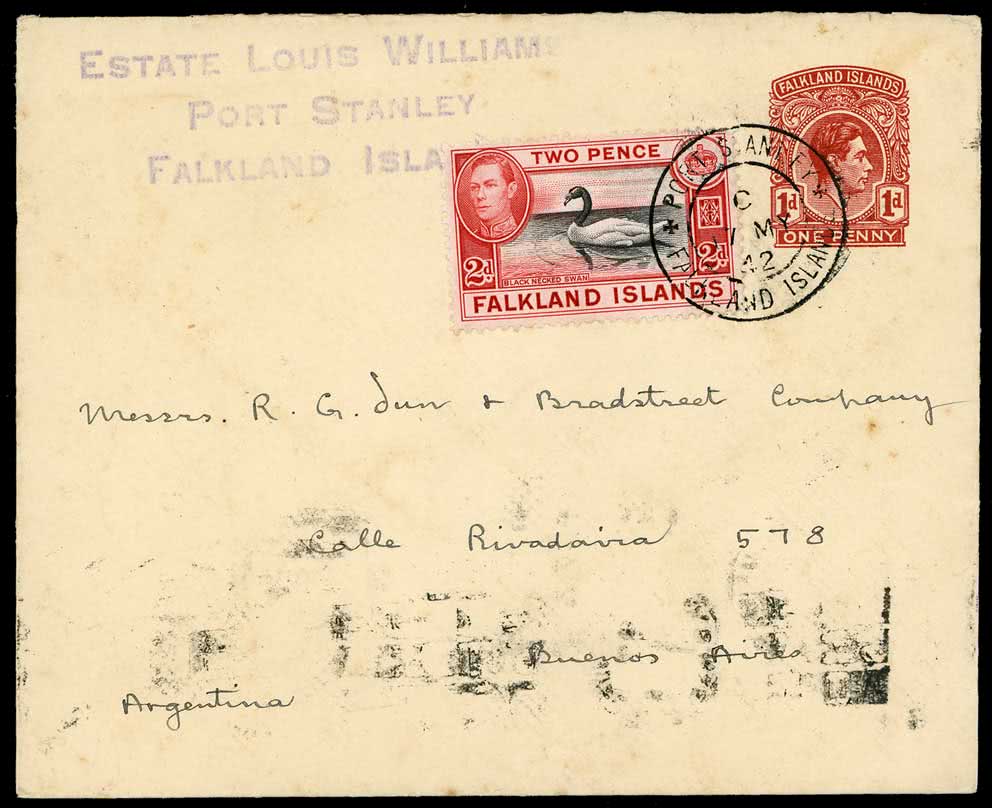 ESTATE LOUIS WILLIAMS
PORT STANLEY
FALKLAND ISLA
TWO PENCE
2d 2d
BLACK NECKED SWAN
FALKLAND ISLANDS
FALKLAND ISLANDS
1d 1d
ONE PENNY
PORT STANLEY
C
MY
42
FALKLAND ISLANDS
Messrs. R. G. Dun & Bradstreet Company
Calle Rivadavia 578
Buenos Aires
Argentina